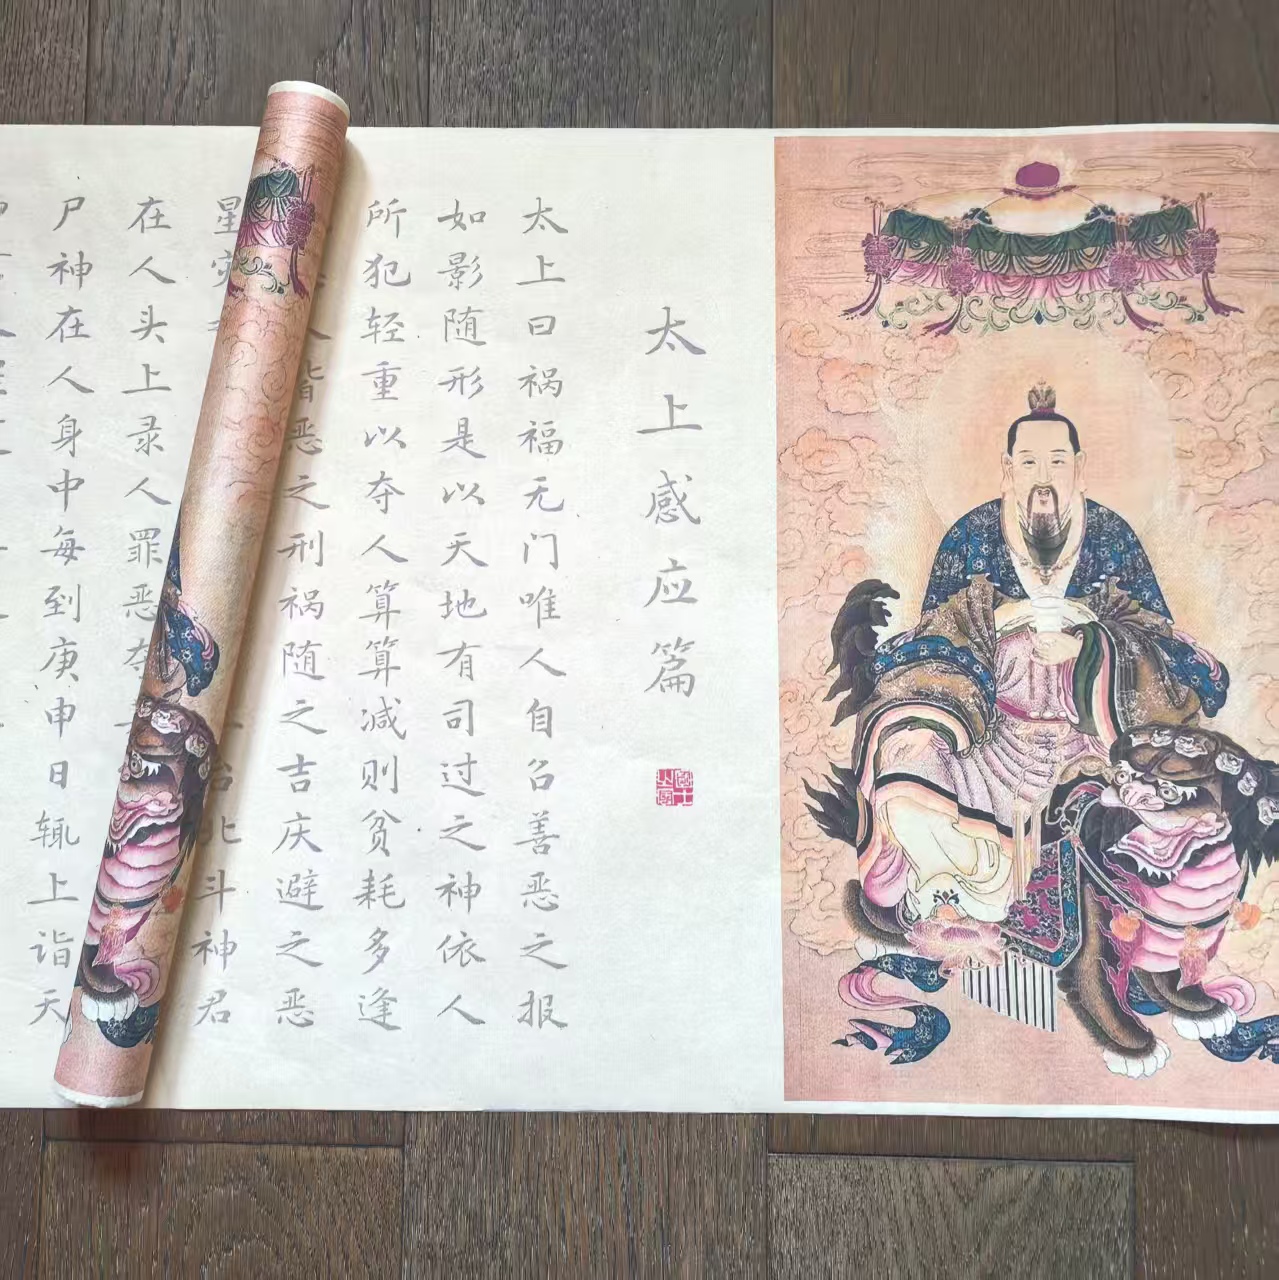 太上感应篇
太上曰祸福无门唯人自召善恶之报
如影随形是以天地有司过之神依人
所犯轻重以夺人算算减则贫耗多逢
人皆恶之刑祸随之吉庆避之恶
星灾台北斗神君
在人头上录人罪恶夺
尸神在人身中每到庚申日辄上诣天